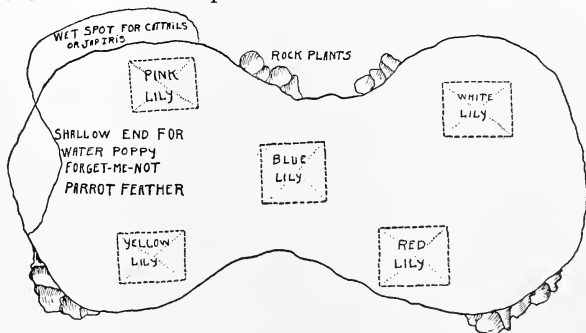 WET SPOT FOR CATTAILS
OR JAP IRIS
ROCK PLANTS
PINK
LILY
WHITE
LILY
SHALLOW END FOR
WATER POPPY
FORGET-ME-NOT
PARROT FEATHER
BLUE
LILY
YELLOW
LILY
RED
LILY